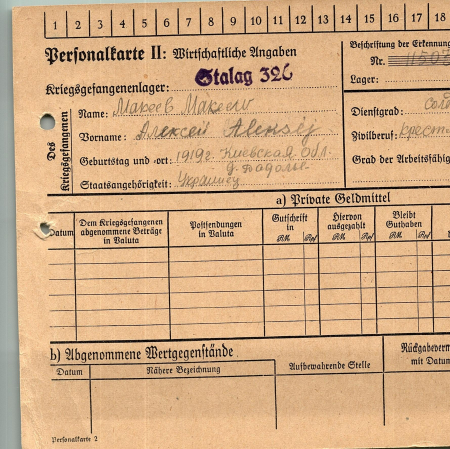 1 2 3 4 5 6 7 8 9 10 11 12 13 14 15 16 17 18
Personalkarte II: Wirtschaftliche Angaben
Beschriftung der Erkennun
Nr.
Kriegsgefangenenlager: Stalag 326
Lager:
Des Kriegsgefangenen
Name: Макеев Makeew
Dienstgrad: сол
Vorname: Алексей Aleksij
Zivilberuf: крест
Geburtstag und -ort: 1919г. Киевская обл.
Grad der Arbeitsfähig
Staatsangehörigkeit: Украинец
a) Private Geldmittel
Datum
Dem Kriegsgefangenen abgenommene Beträge in Valuta
Postsendungen in Valuta
Gutschrift in
RM Rpf
Hiervon ausgezahlt
RM Rpf
Bleibt Guthaben
RM Rpf
b) Abgenommene Wertgegenstände
Datum
Nähere Bezeichnung
Aufbewahrende Stelle
Rückgabeverm
mit Datum
Personalkarte 2